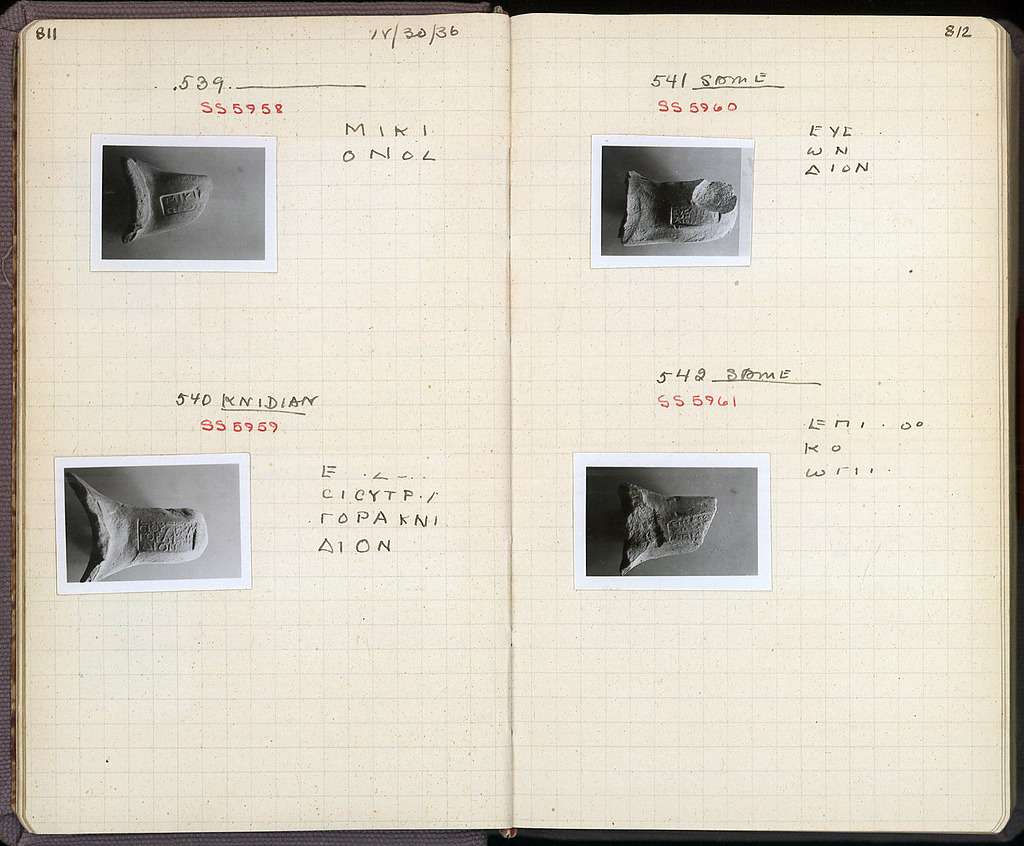 811
IV/30/36
539.
SS 5958
ΜΙΚΙ
ΟΝΟΣ
540 KNIDIAN
SS 5959
Ε
ΓΟΡΑΚΝΙ
ΔΙΟΝ
812
541 SAME
SS 5960
ΕΥΕ
ωΝ
ΔΙΟΝ
542 SAME
SS 5961
ΕΠΙ
ΚΟ